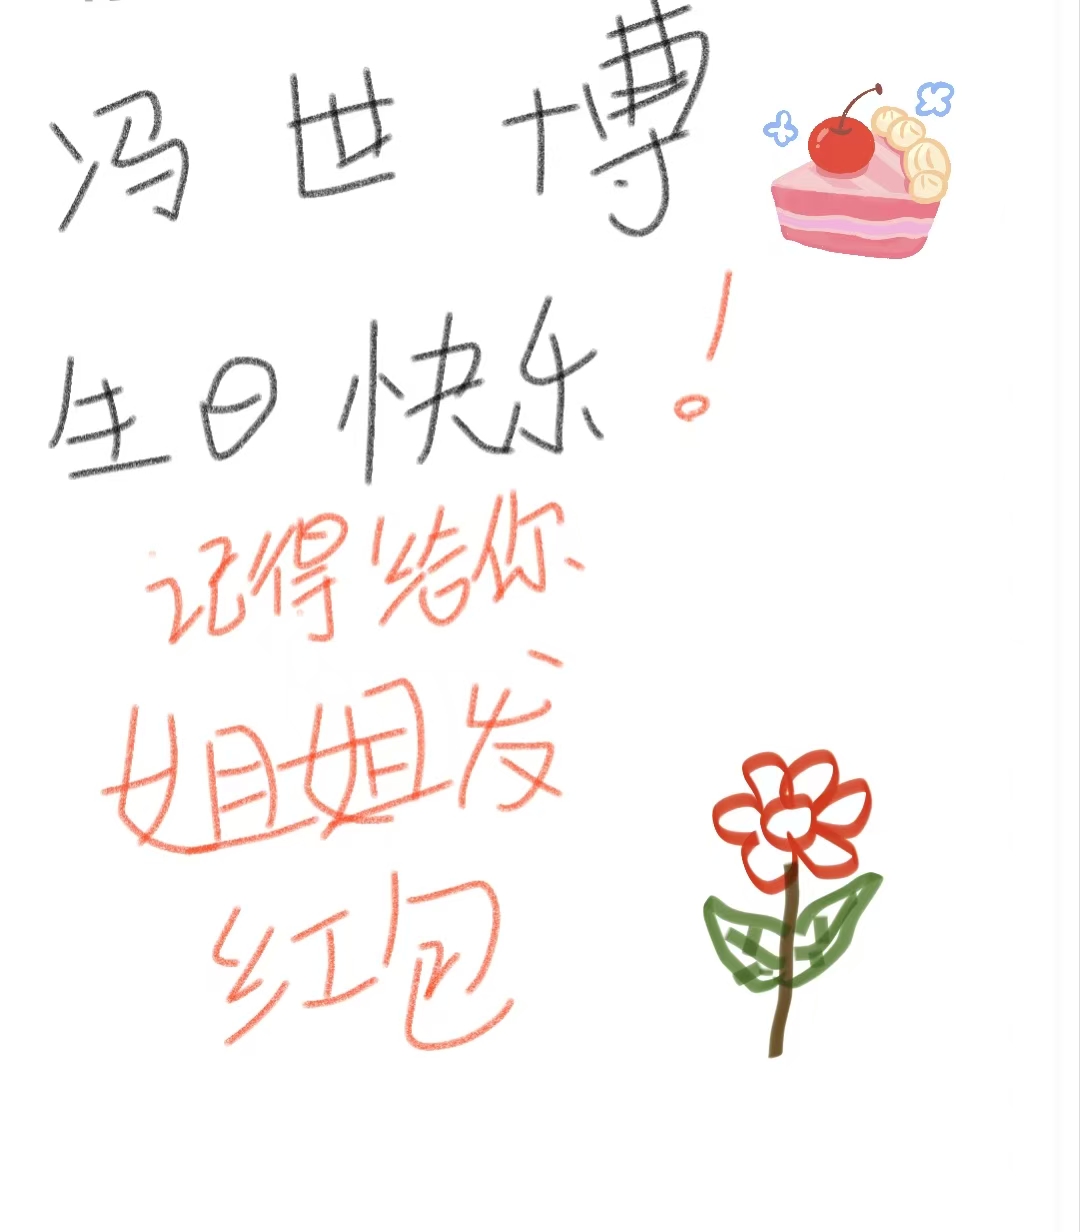 冯世博
生日快乐！
记得给你
姐姐发
红包